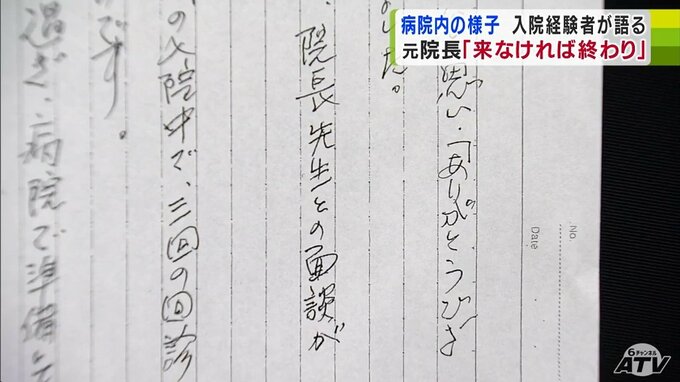 病院内の様子 入院経験者が語る
元院長「来なければ終わり」
No.
Date
思い、「ありがとうござ
した。
院長先生との面談が
の入院中で、三回の回診
です。
過ぎ、病院で準備
6チャンネル
ATV